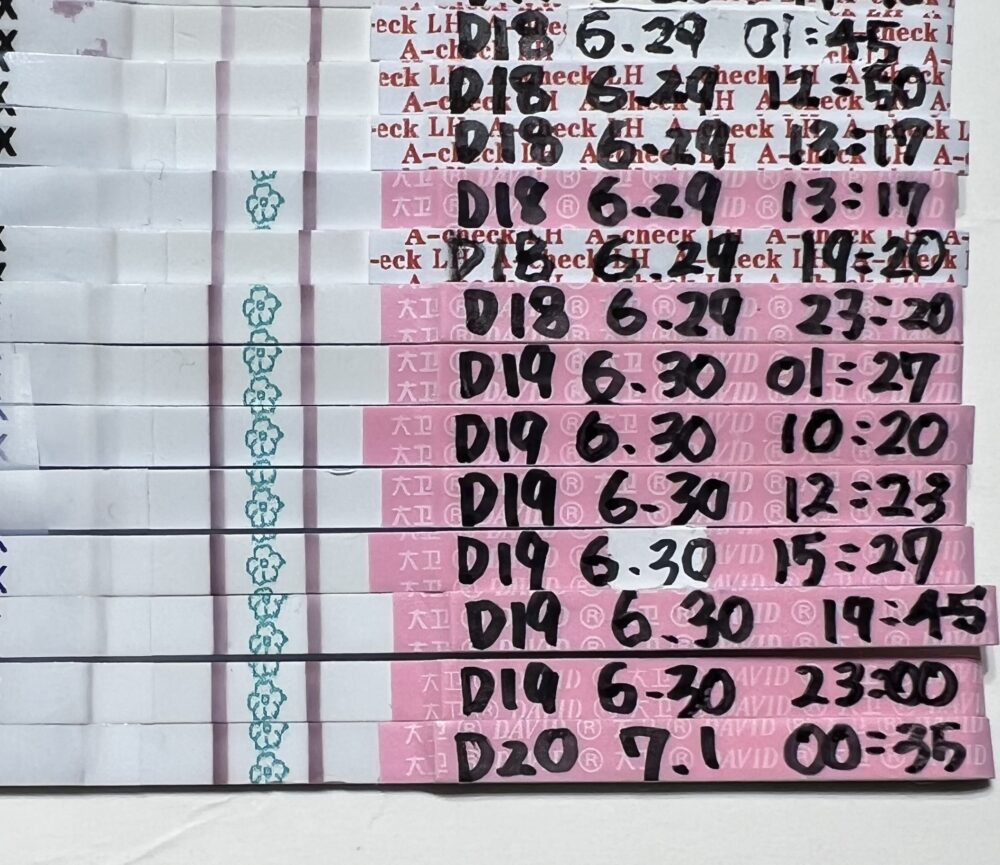 X D18 6.29 01:45
X D18 6.29 12:50
X D18 6.29 13:17
A-check LH
大卫 ® D18 6.29 13:17
D18 6.29 19:20
A-check LH A-check LH A-check LH
大卫 D18 6.29 23:20
大卫 D19 6.30 01:27
大卫 D19 6.30 10:20
大卫 D19 6.30 12:23
X 大卫 D19 6.30 15:27
大卫 D19 6.30 19:45
大卫 D19 6.30 23:00
大卫 DAVID ® D20 7.1 00:35